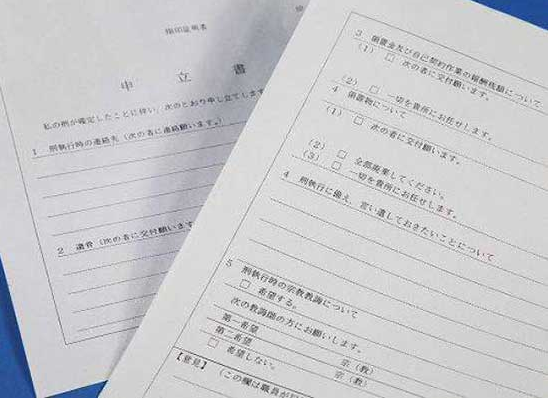 指印証明書
申立書
私の刑が確定したことに伴い、次のとおり申し立てします
1 刑執行時の連絡先（次の者に連絡願います。）
2 遺骨（次の者に交付願います
3 領置金及び自己契約作業の報酬残額について
（1） □ 次の者に交付願います。
（2） □ 一切を貴所にお任せします。
4 領置物について
（1） □ 次の者に交付願います。
（2） □ 全部廃棄してください。
（3） □ 一切を貴所にお任せします。
4 刑執行に備え、言い遺しておきたいことについて
5 刑執行時の宗教教誨について
□ 希望する。
次の教誨師の方にお願いします。
第一希望 宗（教）
第二希望 宗（教）
□ 希望しない。
【意見】 （この欄は職員が